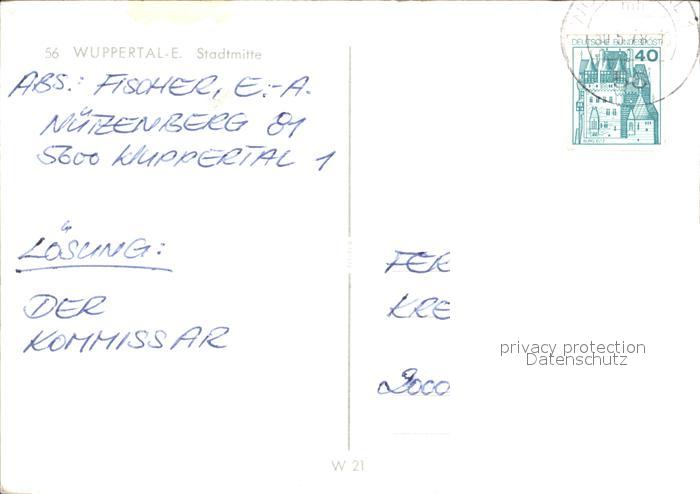 56 WUPPERTAL-E. Stadtmitte
ABS.: FISCHER, E.-A.
NÜTZENBERG 81
5600 WUPPERTAL 1
LÖSUNG:
DER
KOMMISSAR
DEUTSCHE BUNDESPOST
40
BURG ELTZ
FER
KRE
2000
privacy protection
Datenschutz
W 21